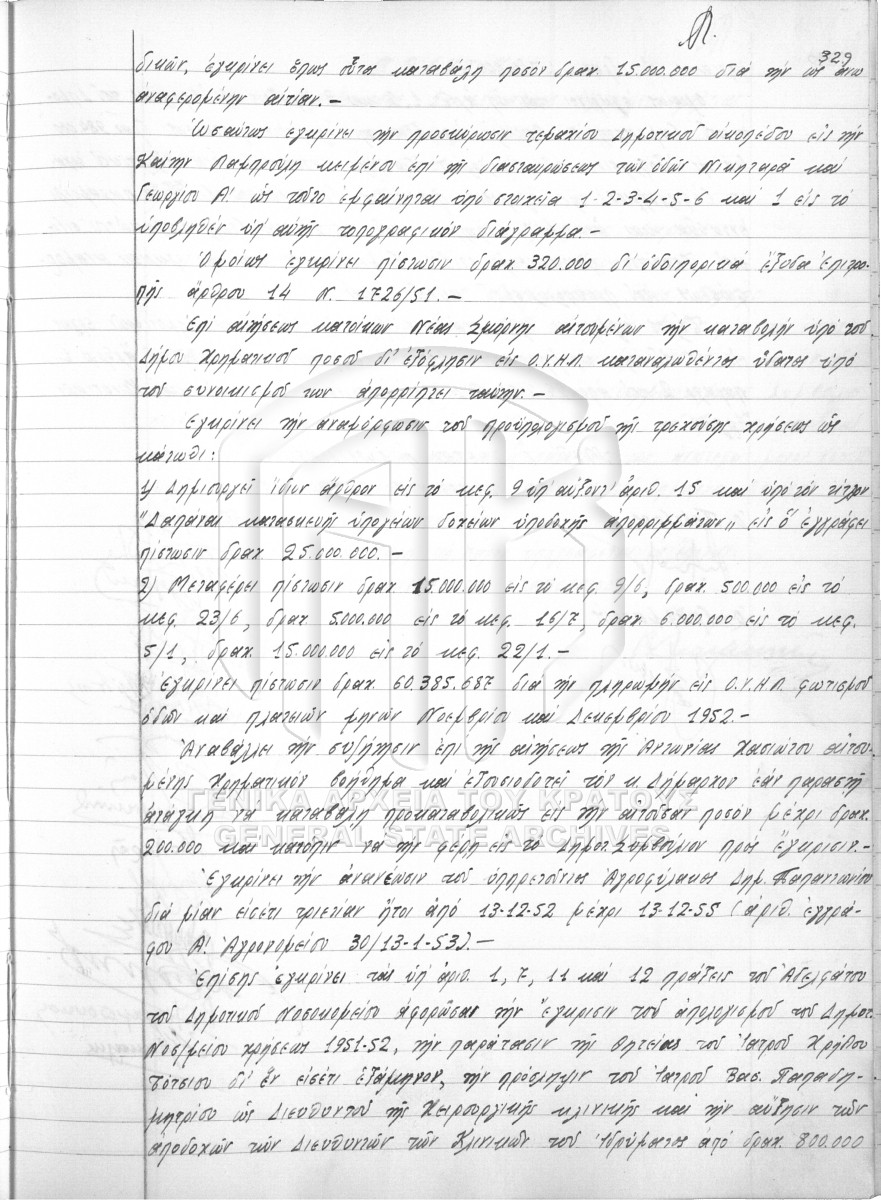 329
δικῶν, ἐγκρίνει ὅπως οὗτος καταβάλῃ ποσὸν δραχ. 15.000.000 διὰ τὴν ὡς ἄνω
ἀναφερομένην αἰτίαν.-
Ὡσαύτως ἐγκρίνει τὴν προσκύρωσιν τεμαχίου Δημοτικοῦ οἰκοπέδου εἰς τὴν
Καίτην Λαμπρούλη κειμένου ἐπὶ τῆς διασταυρώσεως τῶν ὁδῶν Νικηταρᾶ καὶ
Γεωργίου Α! ὡς τοῦτο ἐμφαίνηται ὑπὸ στοιχεῖα 1-2-3-4-5-6 καὶ 1 εἰς τὸ
ὑποβληθὲν ὑπ' αὐτῆς τοπογραφικὸν διάγραμμα.-
Ὁμοίως ἐγκρίνει πίστωσιν δραχ. 320.000 δι' ὁδοιπορικὰ ἔξοδα Ἐπιτρο-
πῆς ἄρθρου 14 Ν. 1726/51.-
Ἐπὶ αἰτήσεως κατοίκων Νέας Σμύρνης αἰτουμένων τὴν καταβολὴν ὑπὸ τοῦ
Δήμου χρηματικοῦ ποσοῦ δι' ἐξόφλησιν εἰς Ο.Υ.Η.Λ. καταναλωθέντος ὕδατος ὑπὸ
τοῦ συνοικισμοῦ των ἀπορρίπτει ταύτην.-
Ἐγκρίνει τὴν ἀναμόρφωσιν τοῦ προϋπολογισμοῦ τῆς τρεχούσης χρήσεως ὡς
κάτωθι:
1) Δημιουργεῖ ἴδιον ἄρθρον εἰς τὸ κεφ. 9 ὑπ' αὔξοντ' ἀριθ. 15 καὶ ὑπὸ τὸν τίτλον
"Δαπάναι κατασκευῆς ὑπογείων δοχείων ὑποδοχῆς ἀπορριμμάτων" εἰς ὃ ἐγγράφει
πίστωσιν δραχ. 25.000.000.-
2) Μεταφέρει πίστωσιν δραχ. 15.000.000 εἰς τὸ κεφ. 9/6, δραχ. 500.000 εἰς τὸ
κεφ. 23/6, δραχ. 5.000.000 εἰς τὸ κεφ. 16/7, δραχ. 6.000.000 εἰς τὸ κεφ.
5/1, δραχ. 15.000.000 εἰς τὸ κεφ. 22/1.-
Ἐγκρίνει πίστωσιν δραχ. 60.385.687 διὰ τὴν πληρωμὴν εἰς Ο.Υ.Η.Λ. φωτισμοῦ
ὁδῶν καὶ πλατειῶν μηνῶν Νοεμβρίου καὶ Δεκεμβρίου 1952.-
Ἀναβάλλει τὴν συζήτησιν ἐπὶ τῆς αἰτήσεως τῆς Ἀντωνίας Χασιώτου αἰτου-
μένης χρηματικὸν βοήθημα καὶ ἐξουσιοδοτεῖ τὸν κ. Δήμαρχον ἐὰν παραστῇ
ἀνάγκη νὰ καταβάλῃ προκαταβολικῶς εἰς τὴν αἰτοῦσαν ποσὸν μέχρι δραχ.
200.000 καὶ κατόπιν νὰ τὴν φέρῃ εἰς τὸ Δημοτ. Συμβούλιον πρὸς ἔγκρισιν.-
Ἐγκρίνει τὴν ἀνανέωσιν τοῦ ὑπηρετοῦντος Ἀγροφύλακος Δημ. Παπαντωνίου
διὰ μίαν εἰσέτι τριετίαν ἤτοι ἀπὸ 13-12-52 μέχρι 13-12-55 (ἀριθ. ἐγγρά-
φου Α! Ἀγρονομείου 30/13-1-53).-
Ἐπίσης ἐγκρίνει τὰς ὑπ' ἀριθ. 1, 7, 11 καὶ 12 πράξεις τοῦ Ἀδελφάτου
τοῦ Δημοτικοῦ Νοσοκομείου ἀφορώσας τὴν ἔγκρισιν τοῦ ἀπολογισμοῦ τοῦ Δημοτ.
Νοσ/μείου χρήσεως 1951-52, τὴν παράτασιν τῆς θητείας τοῦ Ἰατροῦ Χρήστου
Τότσιου δι' ἓν εἰσέτι ἑξάμηνον, τὴν πρόσληψιν τοῦ Ἰατροῦ Βασ. Παπαδη-
μητρίου ὡς Διευθυντοῦ τῆς Χειρουργικῆς κλινικῆς καὶ τὴν αὔξησιν τῶν
ἀποδοχῶν τῶν Διευθυντῶν τῶν Κλινικῶν τοῦ Ἱδρύματος ἀπὸ δραχ. 800.000
ΓΕΝΙΚΑ ΑΡΧΕΙΑ ΤΟΥ ΚΡΑΤΟΥΣ
GENERAL STATE ARCHIVES